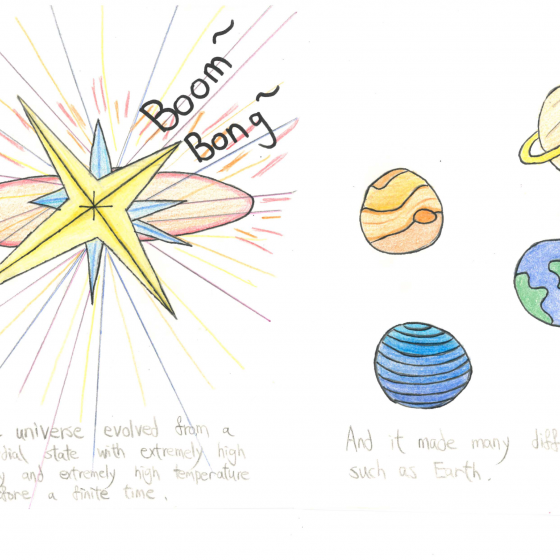 Boom~
Bong~
universe evolved from a
dial state with extremely high
y and extremely high temperature
fore a finite time.
And it made many diff
such as Earth.